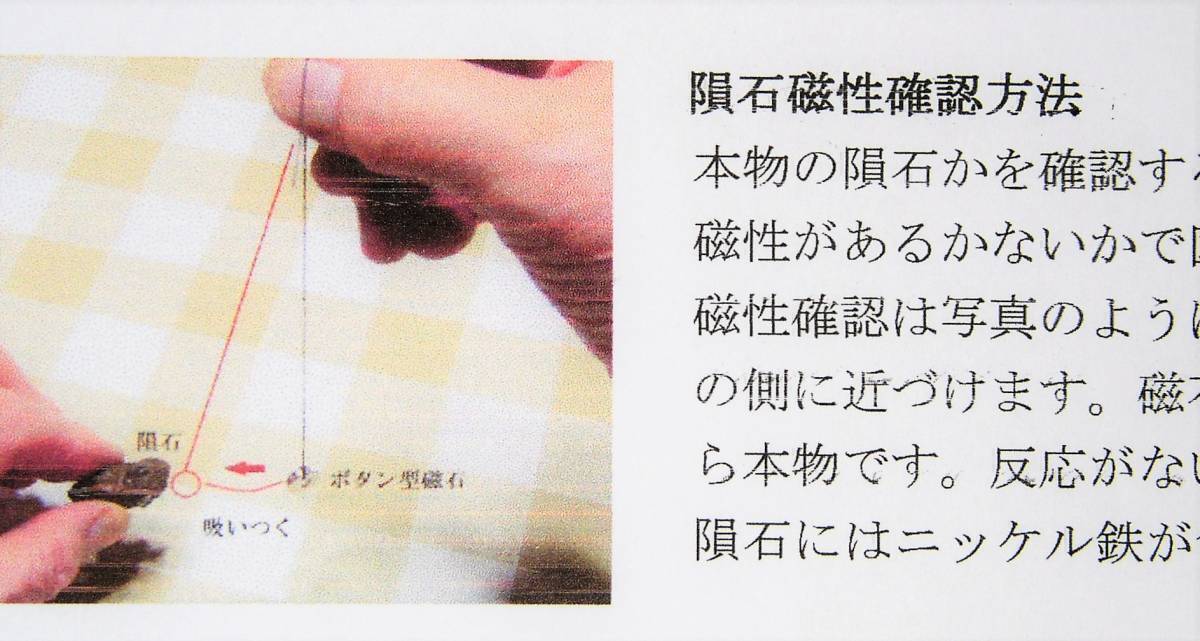 隕石
ボタン型磁石
吸いつく
隕石磁性確認方法
本物の隕石かを確認す
磁性があるかないかで
磁性確認は写真のよう
の側に近づけます。磁
ら本物です。反応がな
隕石にはニッケル鉄が